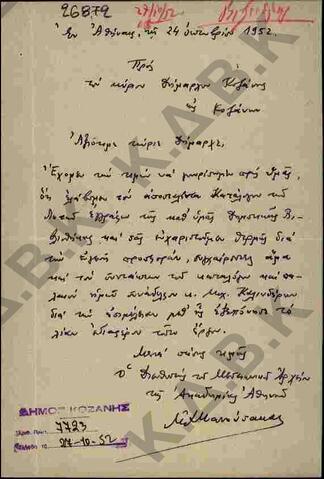 26879
27/10/52
Ἐν Ἀθήναις τῇ 24 Ὀκτωβρίου 1952.
Πρὸς
τὸν κύριον Δήμαρχον Κοζάνης
εἰς Κοζάνην
Ἀξιότιμε κύριε Δήμαρχε,
Ἔχομεν τὴν τιμὴν νὰ γνωρίσωμεν πρὸς Ὑμᾶς,
ὅτι ἐλάβομεν τὸν ἀποσταλέντα Κατάλογον τῶν
ἐγγράφων τῆς καθ' ὑμᾶς Δημοτικῆς Βι-
βλιοθήκης καὶ σᾶς εὐχαριστοῦμεν θερμῶς διὰ
τὴν εὐγενῆ προσφοράν, συγχαίροντες ἅμα
καὶ τὸν συντάκτην τοῦ καταλόγου καὶ πα-
λαιὸν ἡμῶν συνάδελφον κ. Μιχ. Καλινδέρην
διὰ τὴν ἐπιμέλειαν μεθ' ἧς ἐξεπόνησε τὸ
λίαν ἐνδιαφέρον τοῦτο ἔργον.
Μετὰ πάσης τιμῆς
Ὁ Διευθυντὴς τοῦ Μεσαιωνικοῦ Ἀρχείου
τῆς Ἀκαδημίας Ἀθηνῶν
Μανούσακας
ΔΗΜΟΣ ΚΟΖΑΝΗΣ
7723
27-10-52
Κ.Δ.Β.Κ